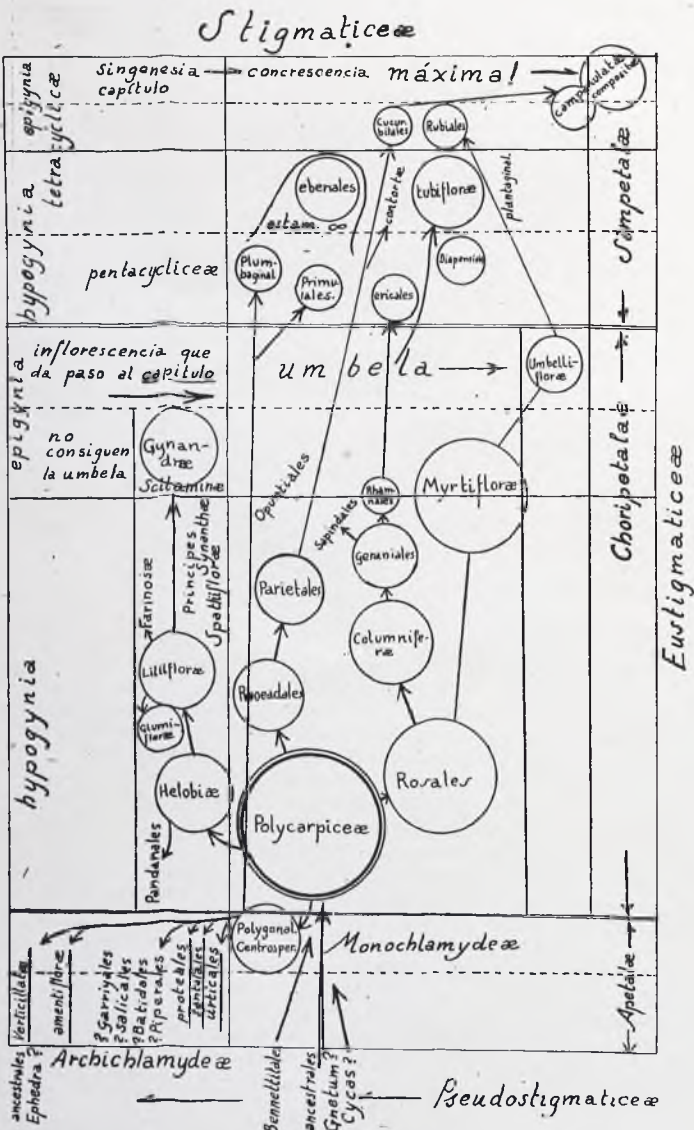 Stigmaticeæ
epigynia
tetracyclicæ
Singenesia
capítulo
concrescencia máxima!
Campanulatæ
compositæ
Cucur-
bitales
Rubiales
ebenales
estam. ∞
contortæ
tubifloræ
plantaginal.
hypogynia
pentacycliceæ
Plum-
baginal
Primu-
lales.
ericales
Diapensial
Sympetalæ
inflorescencia que
da paso al capítulo
umbela
Umbelli-
floræ
epigynia
no
consiguen
la umbela
Gynan-
dræ
Scitamineæ
Opuntiales
Rham-
nales
Myrtifloræ
Choripetalæ
Eustigmaticeæ
Farinosæ
Principes
Synanthæ
Spathifloræ
Sapindales
Geraniales
Parietales
Columnife-
ræ
Lilifloræ
Glumi-
floræ
Rhoeadales
hypogynia
Helobiæ
Rosales
Polycarpiceæ
Pandanales
Polygonal.
Centrosper.
Monochlamydeæ
Apetalæ
Verticillatæ
amentifloræ
? Garriyales
? Salicales
? Batidales
? Piperales
proteales
santalales
urticales
ancestrales
Ephedra?
Archichlamydeæ
Bennettitales
ancestrales
Gnetum?
Cycas?
Pseudostigmaticeæ